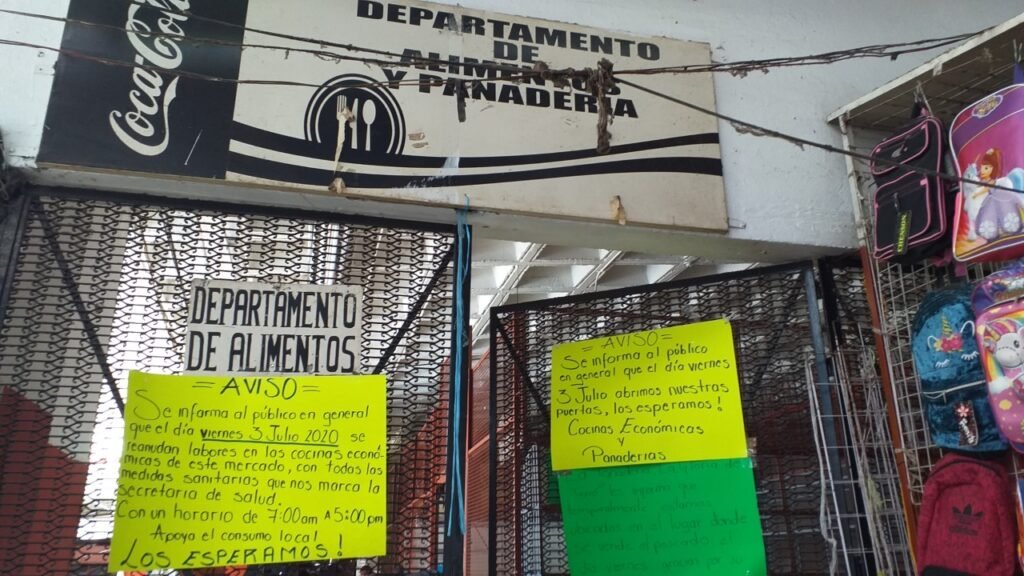 Coca-Cola
DEPARTAMENTO
DE
ALIMENTOS
Y PANADERIA
DEPARTAMENTO
DE ALIMENTOS
= AVISO =
Se informa al público en general
que el día viernes 3 Julio 2020 se
reanudan labores en las cocinas econó-
micas de este mercado, con todas las
medidas sanitarias que nos marca la
secretaria de salud.
Con un horario de 7:00am A 5:00pm
Apoya el consumo local
LOS ESPERAMOS!
= AVISO =
Se informa al público
en general que el día viernes
3 Julio abrimos nuestras
puertas, los esperamos!
Cocinas Económicas
y
Panaderias
que
temporalmente estamos
ubicados en el lugar donde
se vende el pescado el
gracias por su
adidas